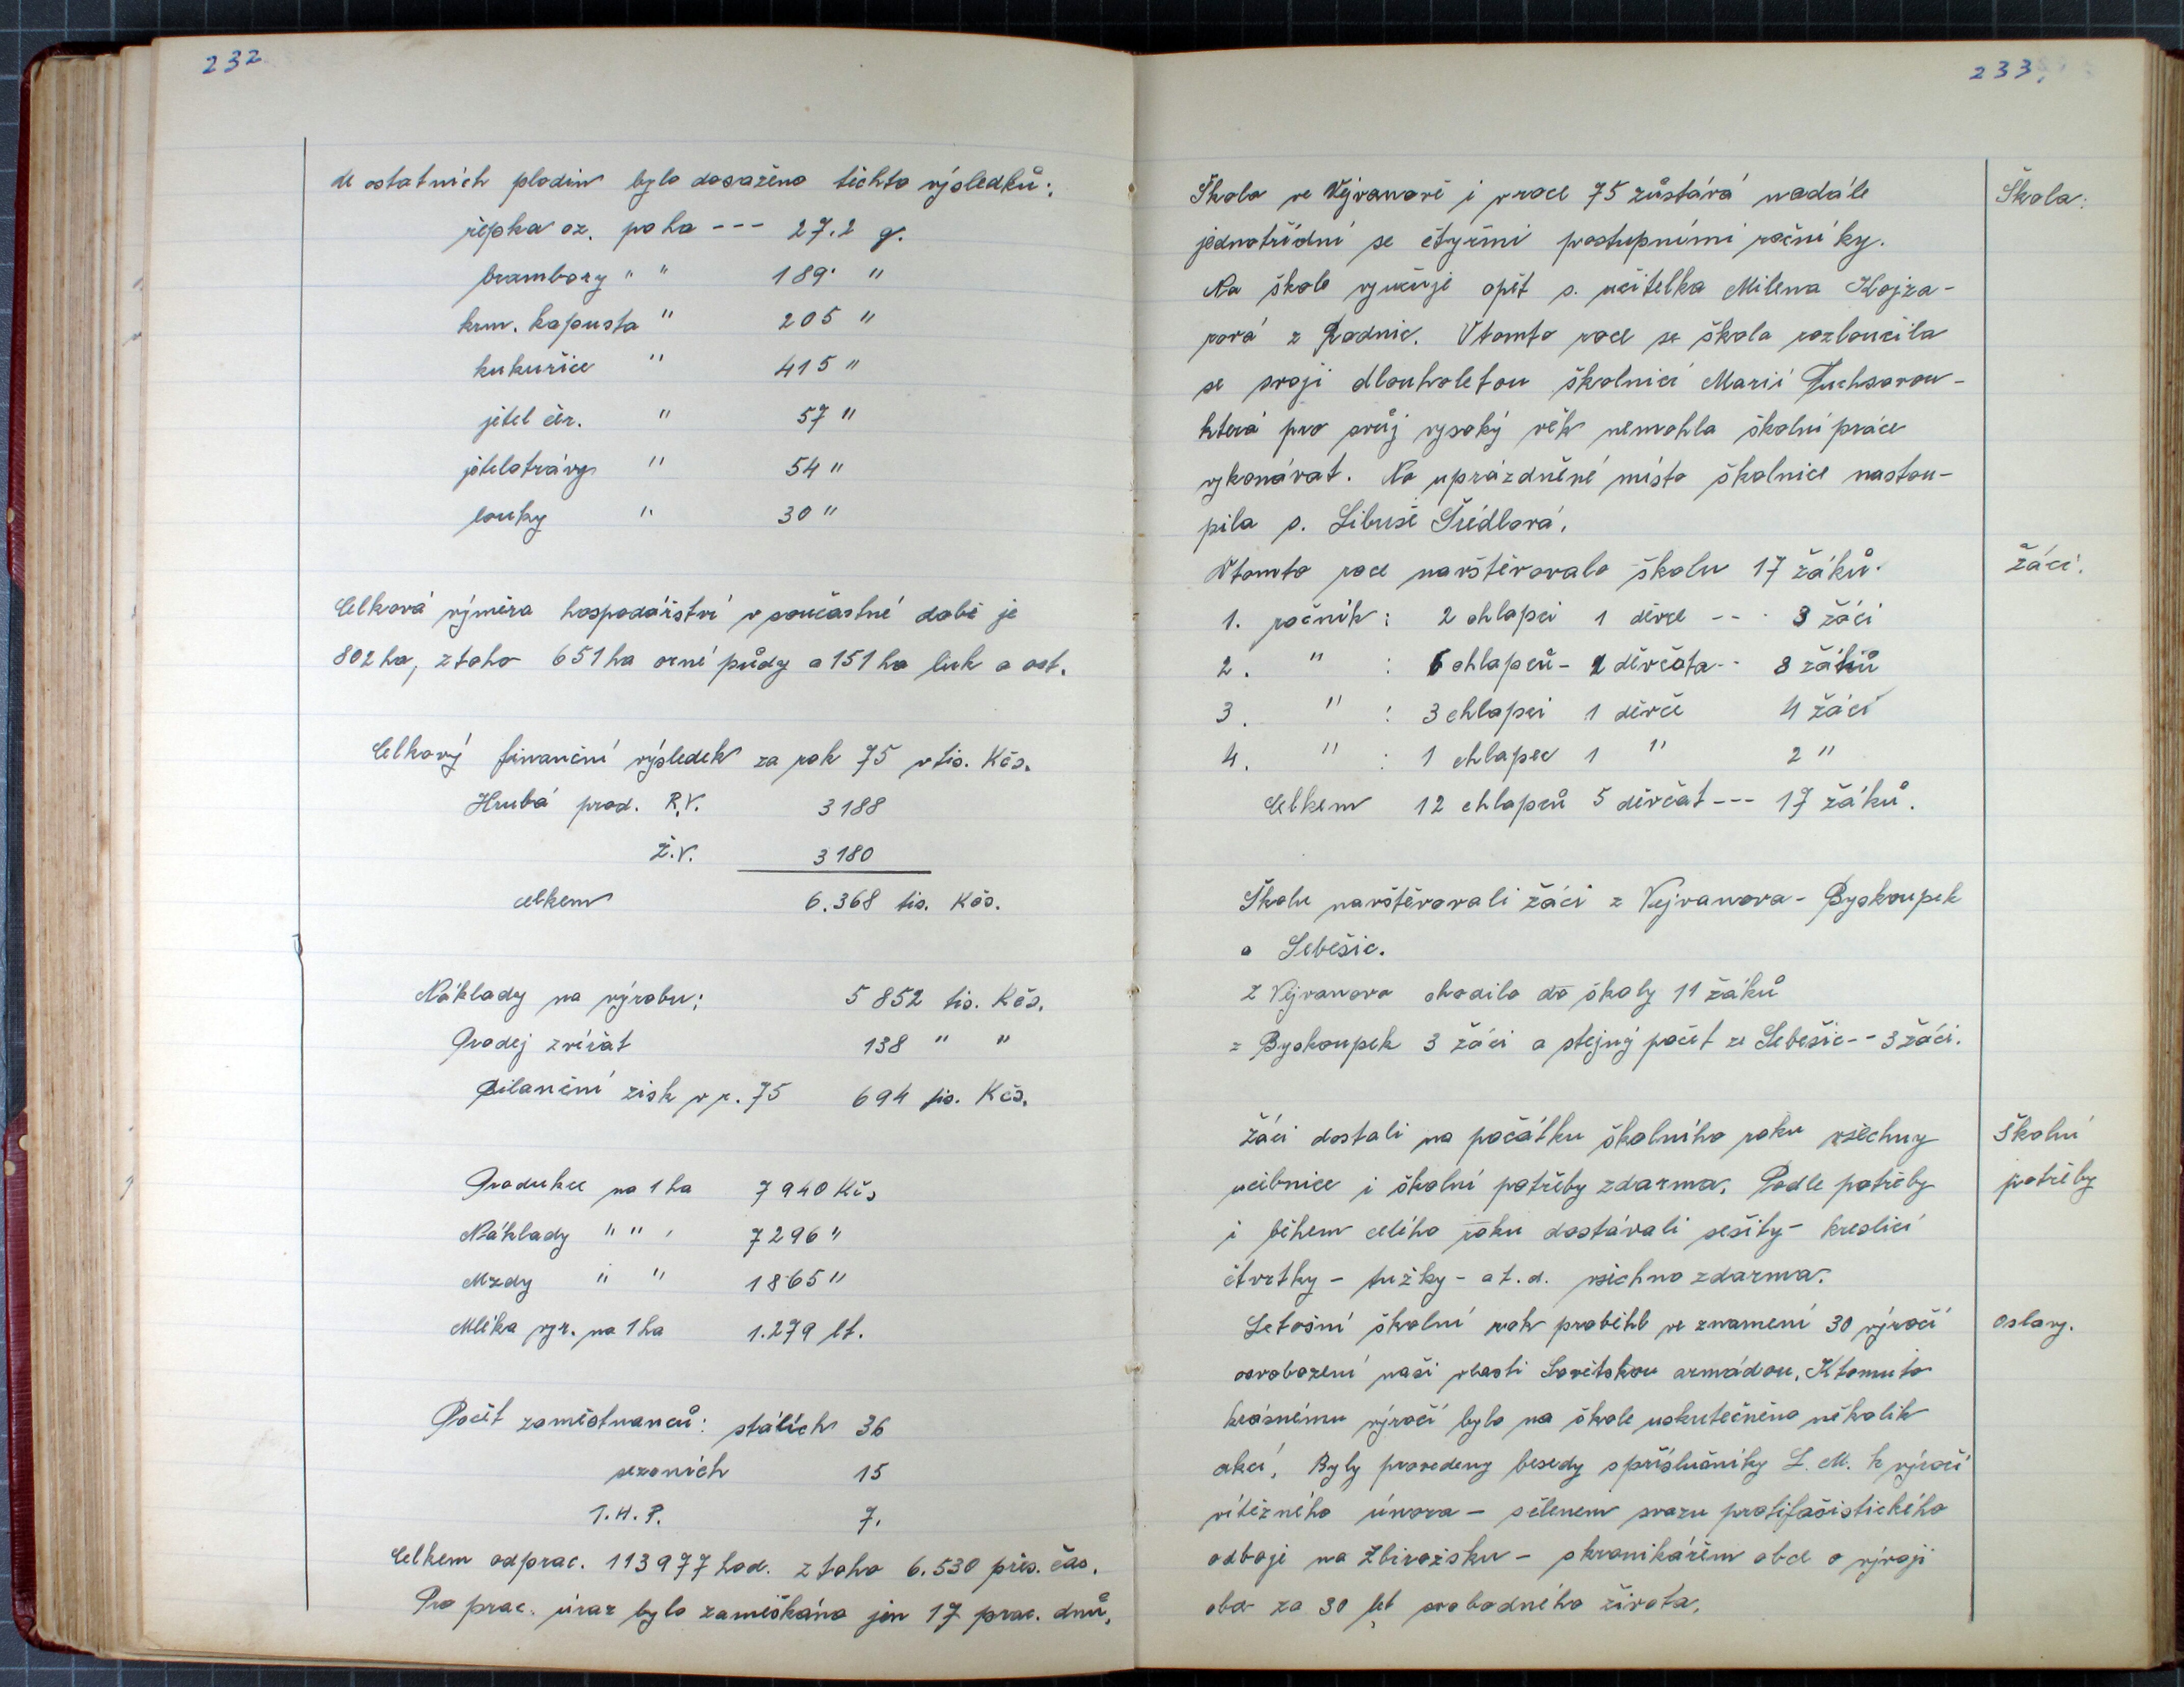 232
U ostatních plodin bylo dosaženo těchto výsledků:
řepka oz. po ha --- 27.2 q.
brambory " " 189 "
krm. kapusta " 205 "
kukuřice " 415 "
jetel čer. " 57 "
jetelotrávy " 54 "
louky " 30 "
Celková výměra hospodářství v součastné době je
802 ha, z toho 651 ha orné půdy a 151 ha luk a ost.
Celkový finanční výsledek za rok 75 v tis. Kčs.
Hrubá prod. R.V. 3188
Ž.V. 3180
celkem 6.368 tis. Kčs.
Náklady na výrobu: 5852 tis. Kčs.
Prodej zvířat 138 " "
Bilanční zisk v r. 75 694 tis. Kčs.
Produkce na 1 ha 7940 Kčs
Náklady " " " 7296 "
Mzdy " " 1865 "
Mléka vyr. na 1 ha 1.279 lt.
Počet zaměstnanců: stálích 36
sezoních 15
T.H.P. 7.
Celkem odprac. 113977 hod. z toho 6.530 přes. čas.
Pro prac. úraz bylo zameškáno jen 17 prac. dnů.
233.
Škola ve Vejvanově i v roce 75 zůstává nadále
jednotřídní se čtyřmi postupními ročníky.
Na škole vyučuje opět s. učitelka Milena Kojza-
rová z Radnic. V tomto roce se škola rozloučila
se svojí dlouholetou školnicí Marií Fuchsovou-
která pro svůj vysoký věk nemohla školní práce
vykonávat. Na uprázdněné místo školnice nastou-
pila s. Libuše Šiedlová.
V tomto roce navštěvovalo školu 17 žáků.
1. ročník: 2 chlapci 1 děvče --- 3 žáci
2. " : 6 chlapců - 2 děvčata -- 8 žáků
3. " : 3 chlapci 1 děvče 4 žáci
4. " : 1 chlapec 1 " 2 "
Celkem 12 chlapců 5 děvčat --- 17 žáků.
Školu navštěvovali žáci z Vejvanova - Byskoupek
a Lebešic.
Z Vejvanova chodilo do školy 11 žáků
z Byskoupek 3 žáci a stejný počet ze Lebešic -- 3 žáci.
Žáci dostali na počátku školního roku všechny
učebnice i školní potřeby zdarma. Podle potřeby
i během celého roku dostávali sešity - kreslicí
čtvrtky - tužky - a t. d. všechno zdarma.
Letošní školní rok proběhl ve znamení 30 výročí
osvobození naší vlasti Sovětskou armádou. K tomuto
krásnému výročí bylo na škole uskutečněno několik
akcí. Byly provedeny besedy s příslušníky L. M. k výročí
vítězného února - s členem svazu protifašistického
odboje na Zbirožsku - s kronikářem obce o vývoji
obce za 30 let svobodného života.
Škola:
Žáci.
Školní
potřeby
Oslavy.